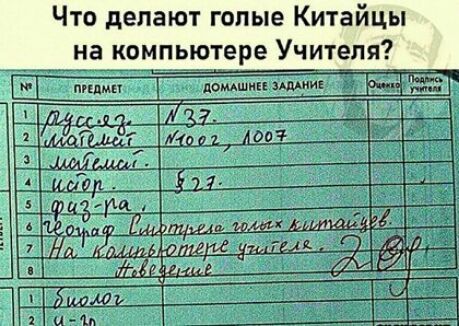 Что делают голые Китайцы
на компьютере Учителя?
№ ПРЕДМЕТ ДОМАШНЕЕ ЗАДАНИЕ Оценка Подпись учителя
1 русс.яз. №37.
2 математ №1002, 1007
3 математ.
4 истор. §27.
5 физ-ра.
6 географ Смотрела голых китайцев.
7 На компьютере учителя.
8 Поведение 2
1 биолог
2